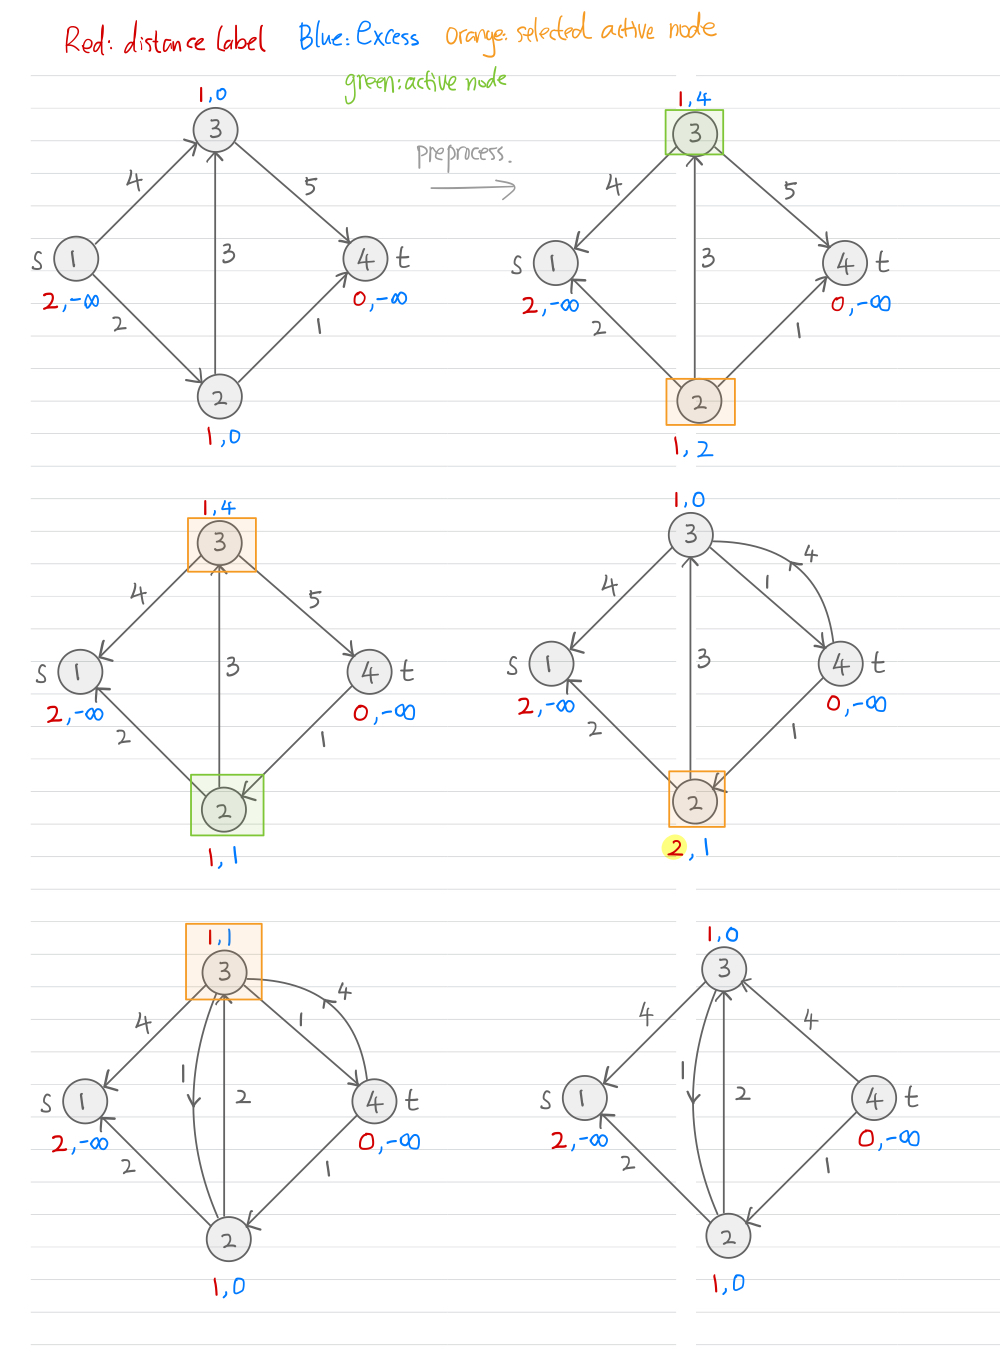 Red: distance label Blue: Excess Orange: selected active node
green: active node
1,0
3
4
5
3
s 1
4 t
2,-∞
0,-∞
2
1
2
1,0
preprocess.
1,4
3
4
5
3
s 1
4 t
2,-∞
0,-∞
2
1
2
1,2
1,4
3
4
5
3
s 1
4 t
2,-∞
0,-∞
2
1
2
1,1
1,0
3
4
1
4
3
s 1
4 t
2,-∞
0,-∞
2
1
2
2,1
1,1
3
4
1
4
1
2
s 1
4 t
2,-∞
0,-∞
2
1
2
1,0
1,0
3
4
4
1
2
s 1
4 t
2,-∞
0,-∞
2
1
2
1,0